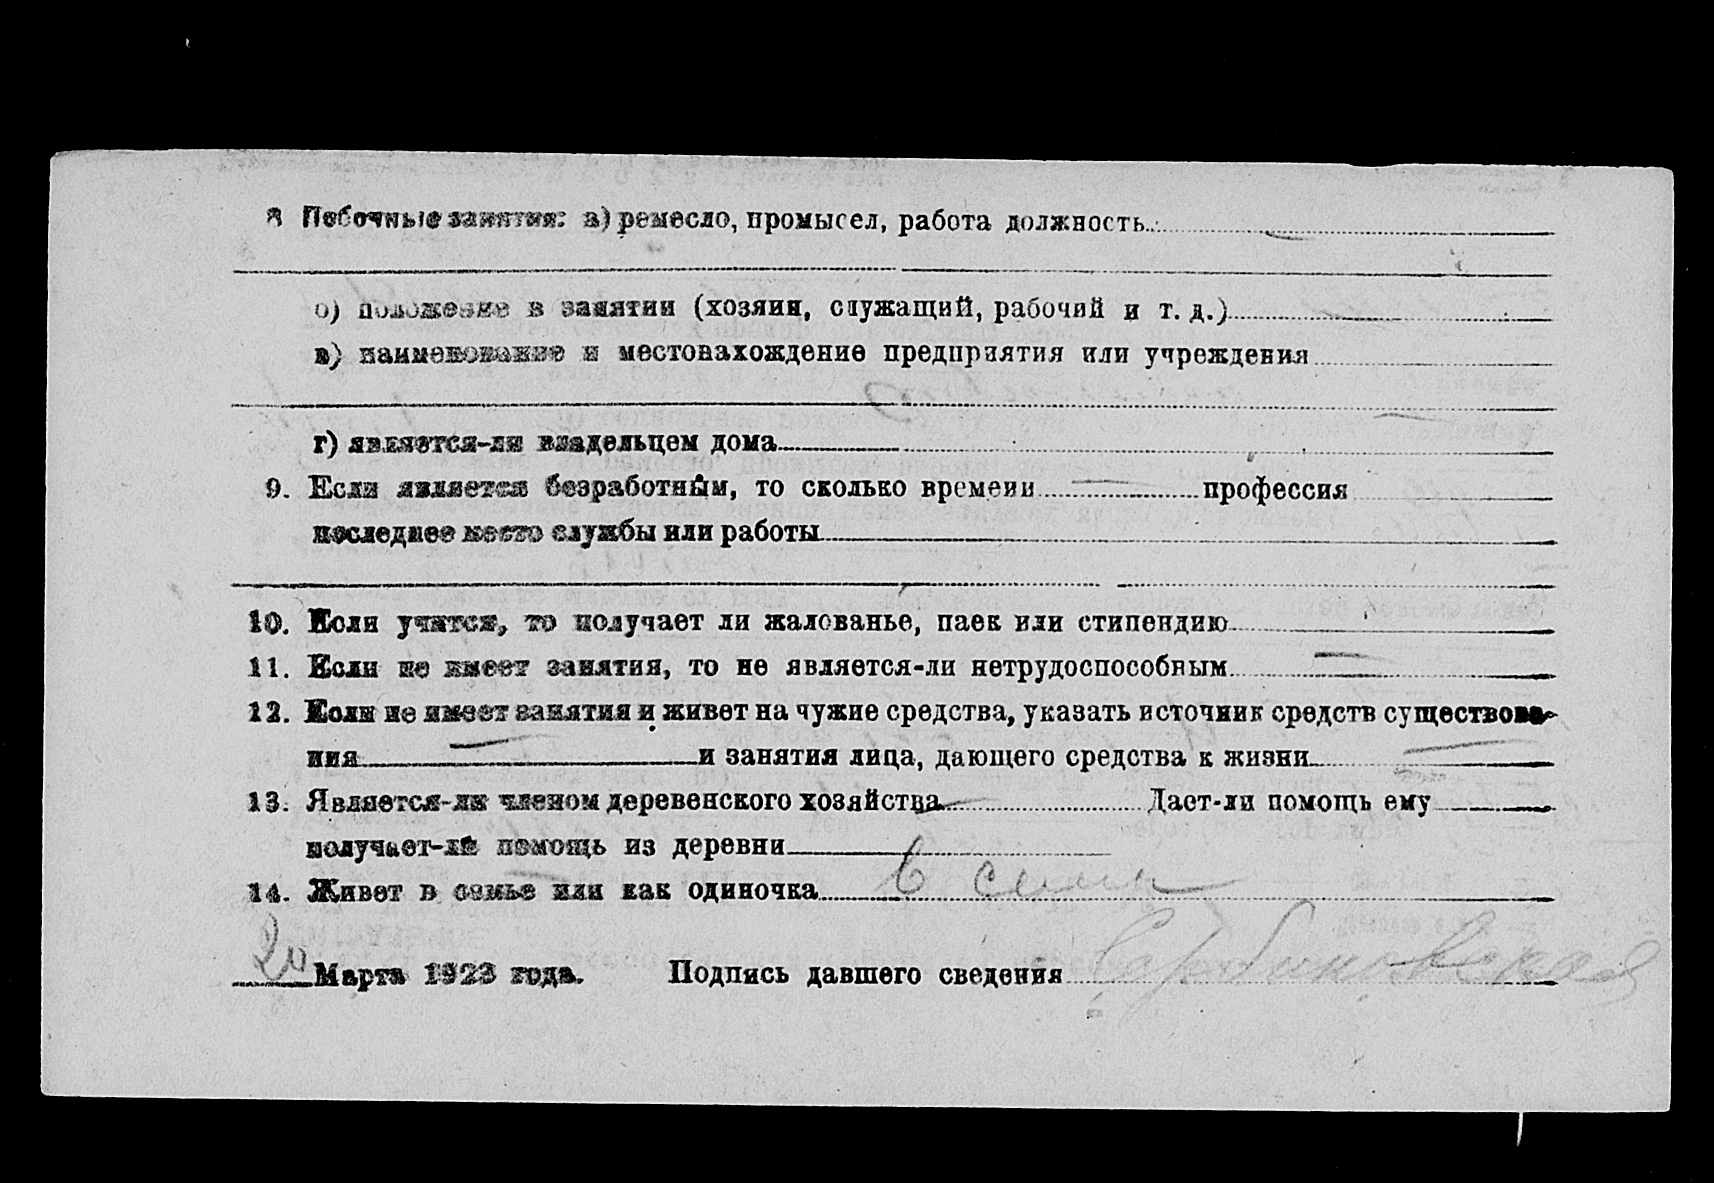 8 Побочные занятия: а) ремесло, промысел, работа должность
б) положение в занятии (хозяин, служащий, рабочий и т. д.)
в) наименование и местонахождение предприятия или учреждения
г) является-ли владельцем дома
9. Если является безработным, то сколько времени — профессия
последнее место службы или работы
10. Если учится, то получает ли жалованье, паек или стипендию
11. Если не имеет занятия, то не является-ли нетрудоспособным —
12. Если не имеет занятия и живет на чужие средства, указать источник средств существова-
ния — и занятия лица, дающего средства к жизни —
13. Является-ли членом деревенского хозяйства — Дает-ли помощь ему
получает-ли помощь из деревни
14. Живет в семье или как одиночка в семье
20 Марта 1923 года. Подпись давшего сведения